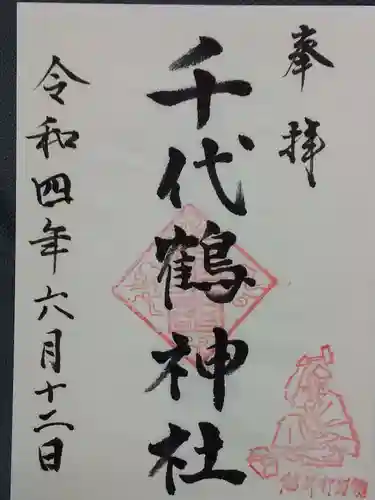 奉拝
千代鶴神社
令和四年六月十二日